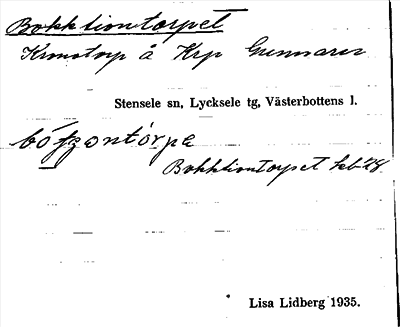 Bokktiontorpet
Kronotorp å Krp Gunnaren
Stensele sn, Lycksele tg, Västerbottens l.
Bokktiontorpet kb 48
Lisa Lidberg 1935.